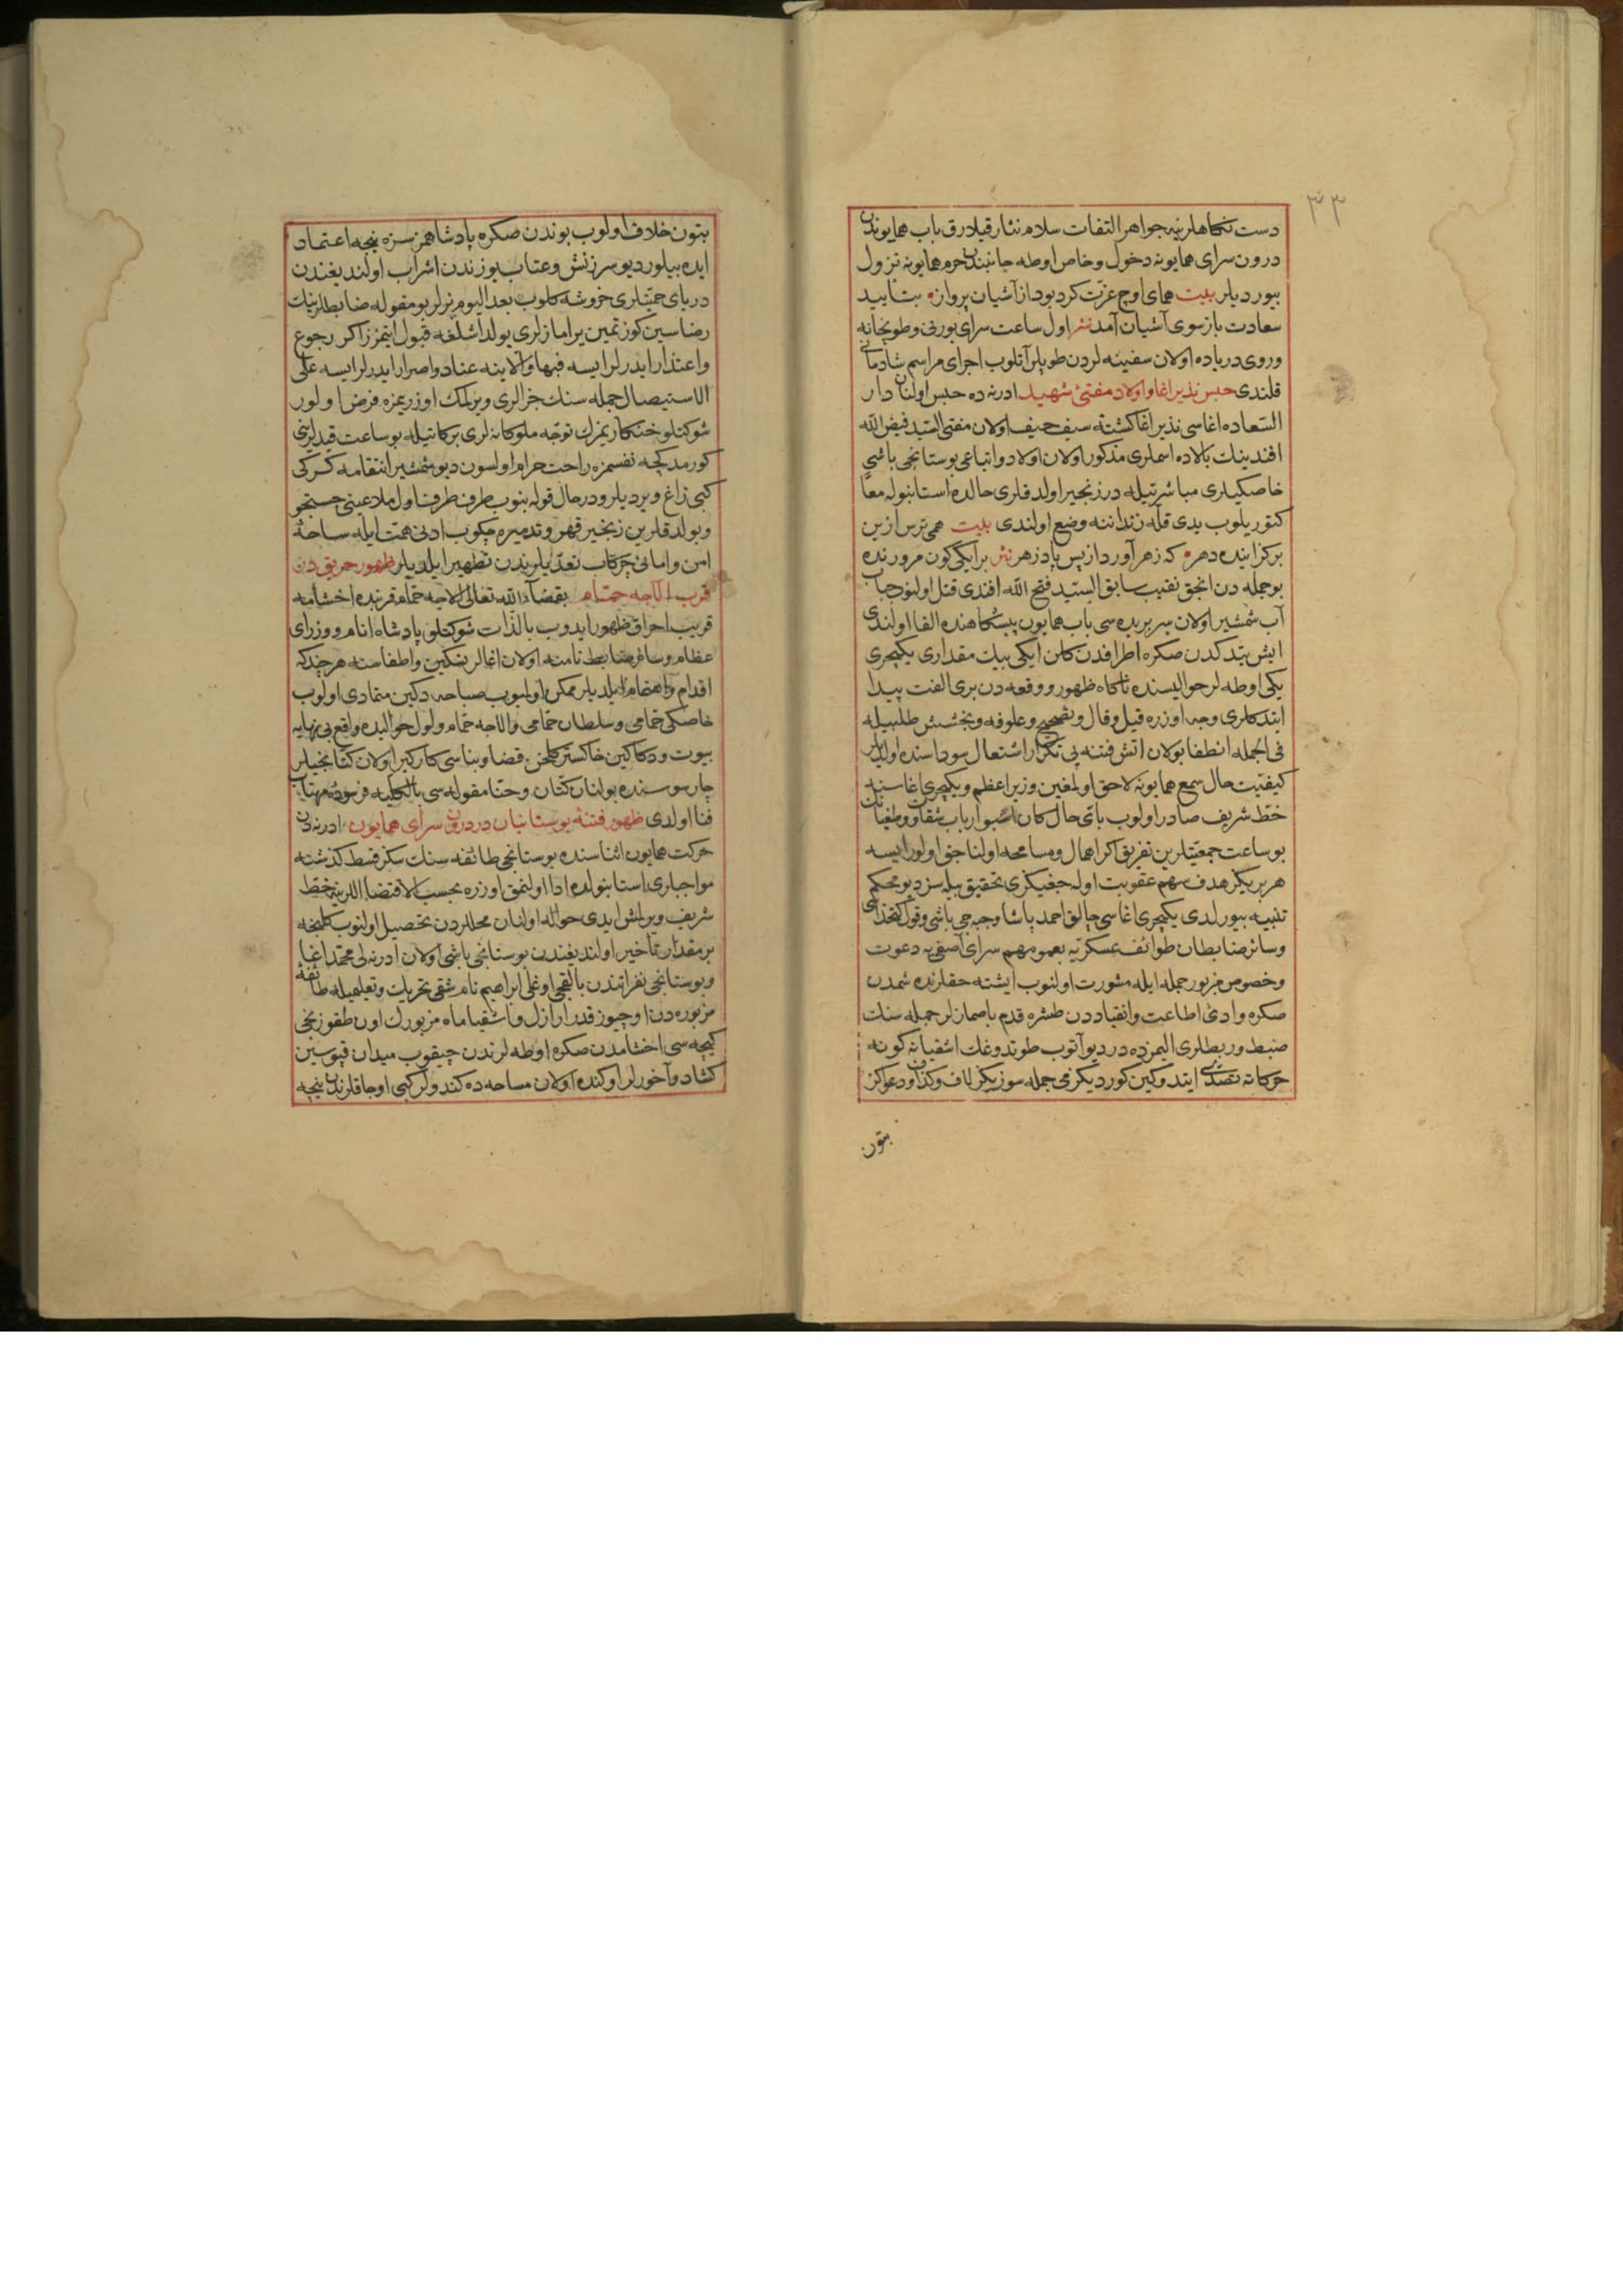 ٣٣
دست نكاهلرينه جواهر التفات سلام نثار قيلارق باب همايوندن
درون سراى همايونه دخول وخاص اوطه جانبندن حرم همايونه نزول
بيورديلر بيت هماى اوج عزت كرد بود از آشيان پرواز بتاييد
سعادت باز سوى آشيان آمد نثر اول ساعت سراى بورنى وطوپخانه
وروى درياده اولان سفينه لردن طوپلر آتلوب اجراى مراسم شادمانى
قلندى حبس نذير اغا و اولاد مفتئ شهيد ادرنه ده حبس اولنان دار
السعاده اغاسى نذير اغا كشتهٔ سيف حيف اولان مفتى السيد فيض الله
افندينك بالاده اسملرى مذكور اولان اولاد و اتباعى بوستانجى باشى
خاصكيلرى مباشرتيله در زنجير اولدقلرى حالده استانبوله معًا
كتوريلوب يدى قله زنداننه وضع اولندى بيت همى ترس ازين
بركزاينده دهر كه زهر آورد از پس پادزهر نثر بر ايكى كون مرورنده
بوجمله دن انجق نقيب سابق السيد فتح الله افندى قتل اولنوب
آب شمشير اولان سر بريده سى باب همايون پيشكاهنده القا اولندى
ايش بتدكدن صكره اطرافدن كلن ايكى بيك مقدارى يكيچرى
يكى اوطه لر حواليسنده ناكاه ظهور ووقعه دن برى الفت پيدا
ايتدكلرى وجه اوزره قيل وقال وتصحيح وعلوفه وبخشش طلبيله
فى الجمله انطفا بولان اتش فتنه يى تكرار اشتعال سوداسنده اولديلر
كيفيت حال سمع همايونه لاحق اولمغين وزير اعظم ويكيچرى اغاسنه
خط شريف صادر اولوب باقى حال كان اشبو ارباب شقا و طغيانك
بو ساعت جمعيتلرين تفريق اكر اهمال ومسامحه اولناجق اولور ايسه
هر بريكز هدف سهم عقوبت اوله جغيكزى تحقيق بيله سز ديو محكم
تنبيه بيورلدى يكيچرى اغاسى چالق احمد پاشا وجبه جى باشى وقول كتخداسى
وسائر ضابطان طوائف عسكريه بعمومهم سراى آصفى يه دعوت
وخصوص مزبور جمله ايله مشورت اولنوب ايشته حقلرنده شمدن
صكره وادئ اطاعت وانقياددن طشره قدم باصمازلر جمله سنك
ضبط وربطلرى اليمزده در ديو آتوب طوتدوغك اشقيانه كونه
حركاته تصدى ايتدوكين كورديكز مى جمله سوزيكز لاف وكذاف ودعواكز
بتون
بتون خلاف اولوب بوندن صكره پادشاهمز سزه نيجه اعتماد
ايده بيلور ديو سرزنش وعتاب يوزندن اشراب اولنديغندن
درياى حميتلرى خروشه كلوب بعد اليوم نرلر بو مقوله ضابطلرينك
رضاسين كوزتمين يرامازلرى يولداشلغه قبول ايتمزز اكر رجوع
واعتذار ايدرلر ايسه فبها والا ينه عناد واصرار ايدرلر ايسه على
الاستيصال جمله سنك جزالرى ويرلمك اوزريمزه فرض اولور
شوكتلو خنكاريمزك توجه ملوكانه لرى بركاتيله بو ساعت قيدلرينى
كورمدكجه نفسمزه راحت حرام اولسون ديو شمشير انتقامه كركى
كبى زاغ ويرديلر ودرحال قوله بنوب طرف طرف اول ملاعينى جستجو
وبولدقلرين زنجير قهر وتدميره چكوب ادنى همت ايله ساحهٔ
امن وامانى چركاب تعديلرندن تطهير ايلديلر ظهور حريق دن
قرب الاجه حمام بقضاء الله تعالى الاجه حمام قربنده اخشامه
قريب احراق ظهور ايدوب بالذات شوكتلو پادشاه انام ووزراى
عظام وسائر ضابط نامنه اولان اغالر تسكين واطفاسنه هرچندكه
اقدام واهتمام ايلديلر ممكن اولميوب صباحه دكين متمادى اولوب
خاصكى حمامى وسلطان حمامى والاجه حمام ول اول حواليده واقع بى نهايه
بيوت ودكاكين خاكستر كلخن قضا وبناسى كاركير اولان كتانجيلر
چارسوسنده بولنان كتان وحتا مقوله سى بالكليه فرسودهٔ مهتاب
فنا اولدى ظهور فتنهٔ بوستانيان در درون سراى همايون ادرنه دن
حركت همايون اثناسنده بوستانجى طائفه سنك سكز قسط كذشته
مواجبلرى استانبولده ادا اولنمق اوزره بحسب الاقتضا اللرينه خط
شريف ويرلمش ايدى حواله اولنان محللردن تحصيل اولنوب كلنجه
بر مقدار تأخير اولنديغندن بوستانجى باشى اولان ادرنه لى محمد اغا
وبوستانجى نفراتندن بالقجى اوغلى ابراهيم نام شقى تحريك وتعليميله طائفهٔ
مزبوره دن اوچيوز قدر ارازل واشقيا ماه مزبورك اون طقوزنجى
كيجه سى اخشامدن صكره اوطه لرندن چيقوب ميدان قپوسين
كشاد وآخورلر اوكنده اولان مساحه ده كندولر كبى اوجاقلرندن نيجه